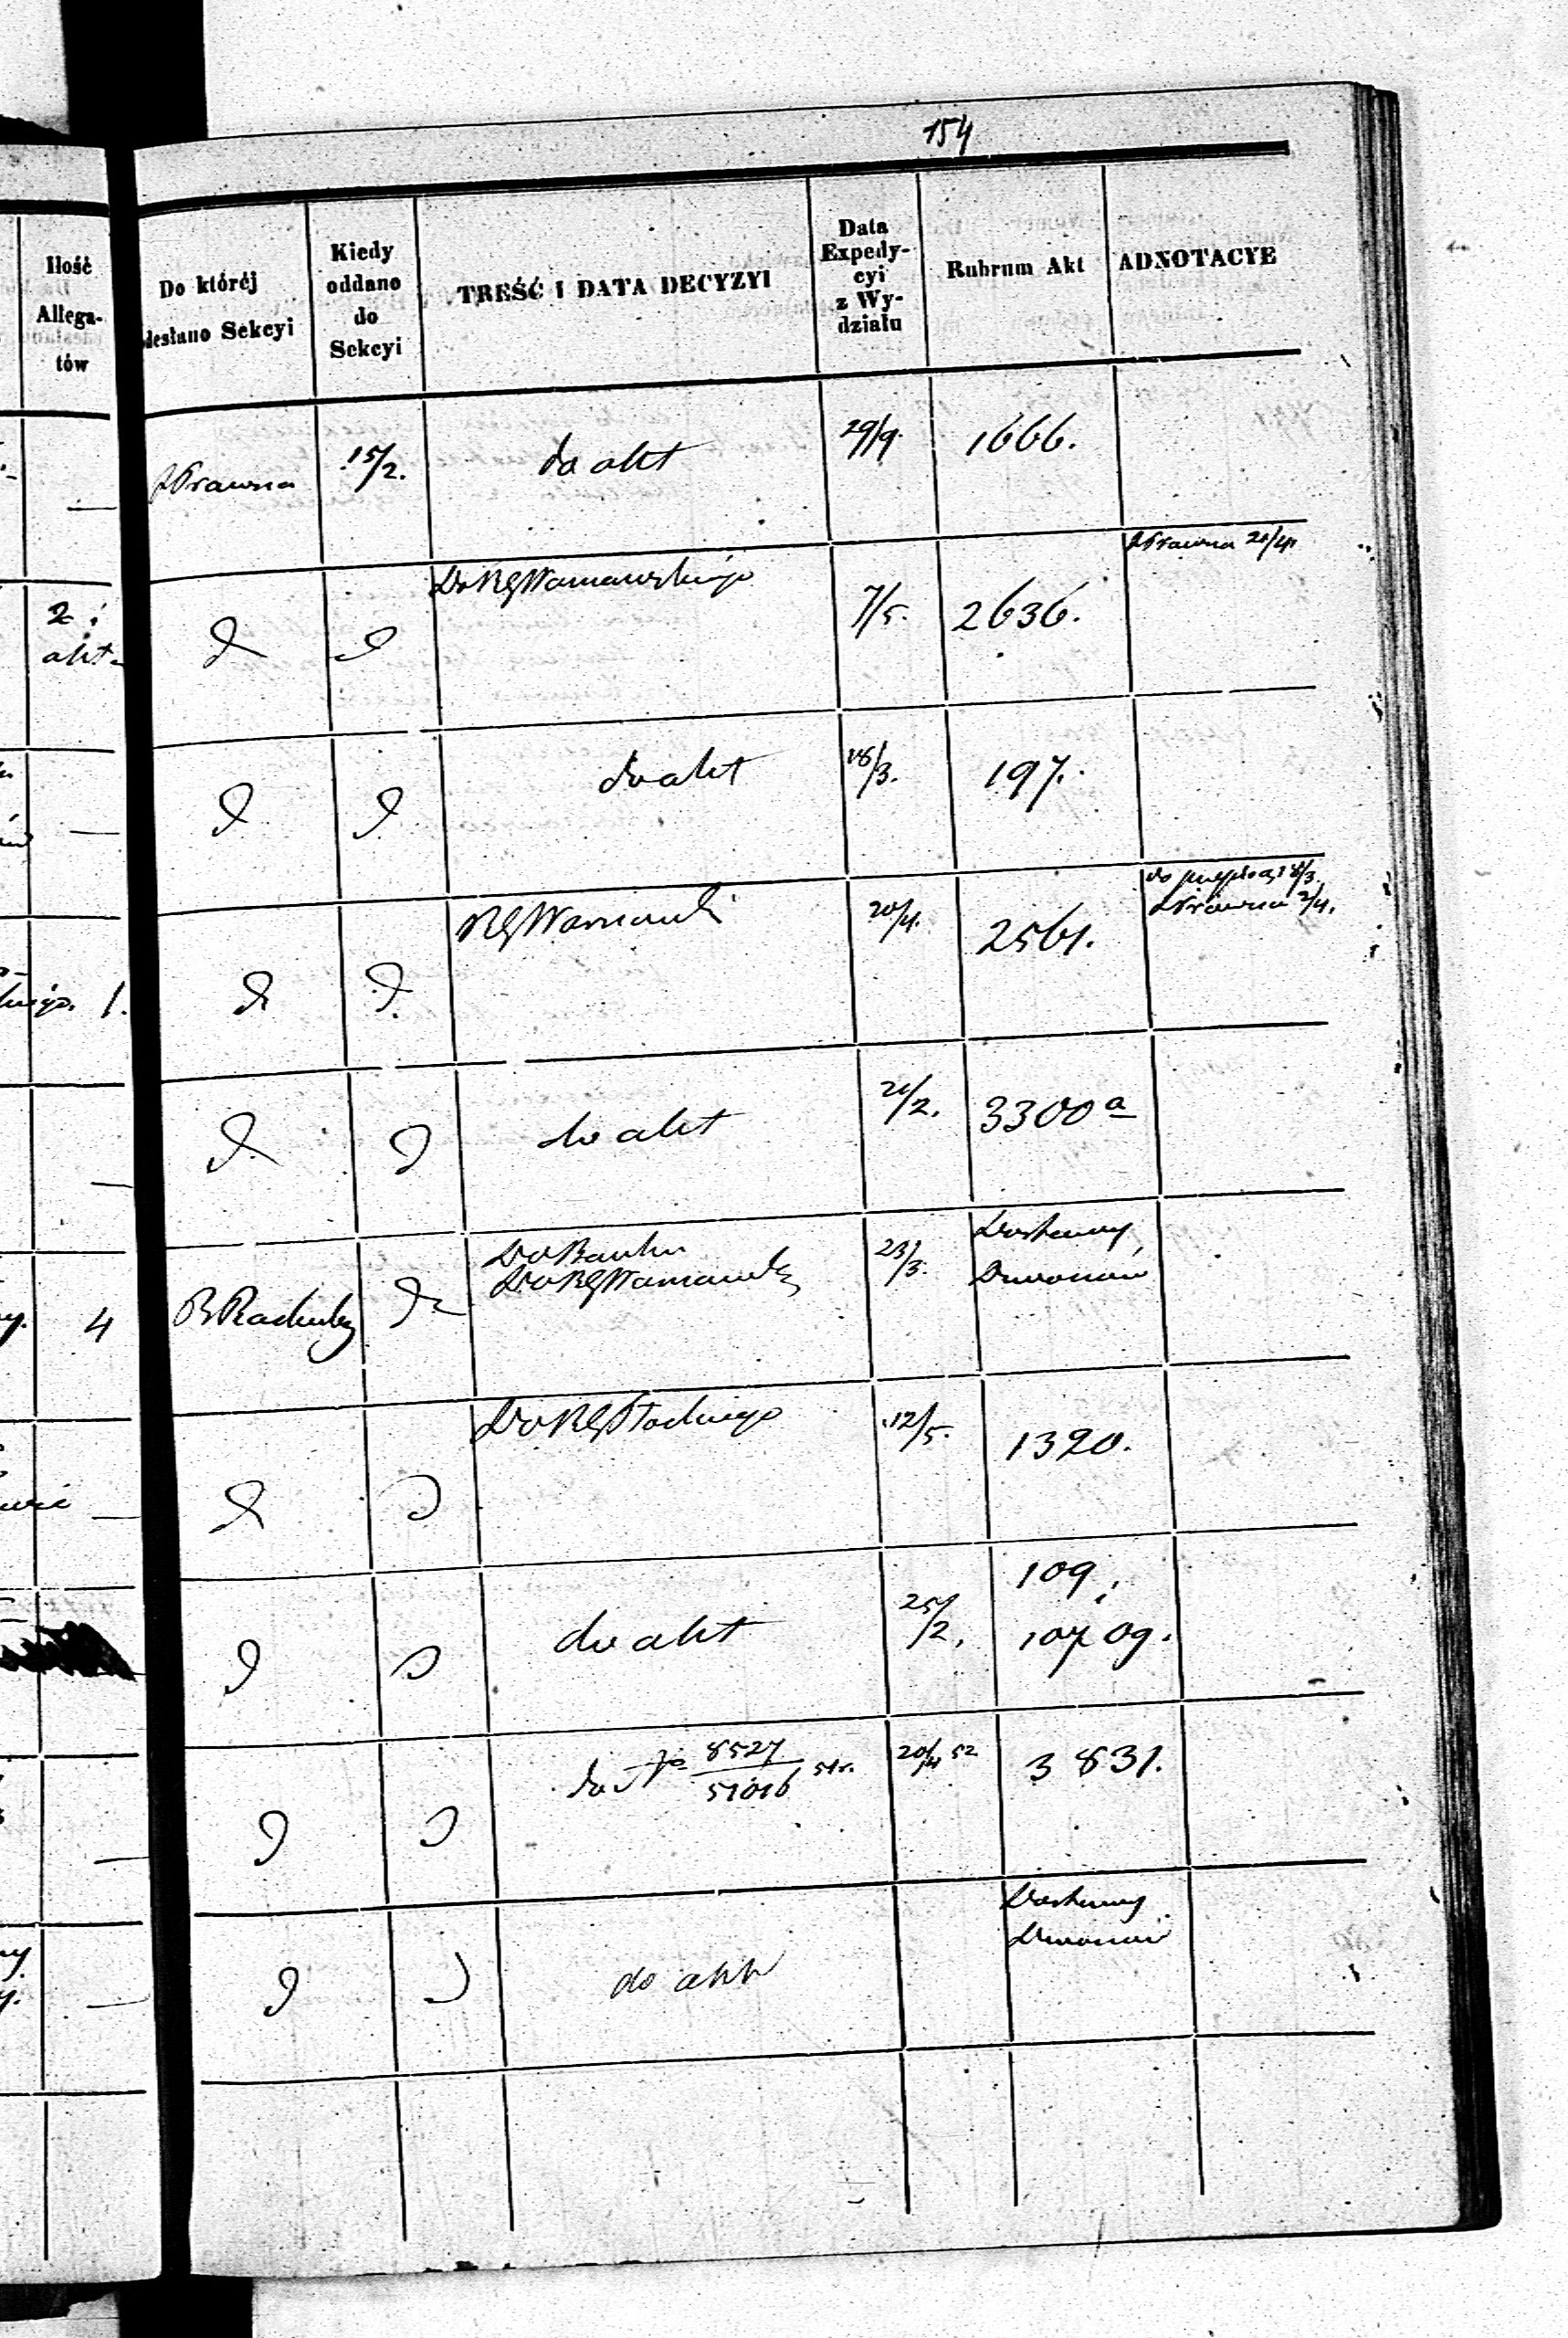 154
Ilość
Allega-
tów
Do któréj
desłano Sekcyi
Kiedy
oddano
do
Sekcyi
TREŚĆ I DATA DECYZYI
Data
Expedy-
cyi
z Wy-
działu
Rubrum Akt
ADNOTACYE
Prawna
15/2.
do akt
29/9.
1666.
2 i
akt
Do RG Warszawskiego
7/5.
2636.
Prawna 21/4.
do akt
18/3.
197.
1.
RG Warszawski
20/4.
2561.
do 18/3.
Prawna 2/4.
do akt
21/2.
3300 a
4
B Rachuby
Do Banku
Do RG Warszawsk
23/3.
Do RG Płockiego
12/5.
1320.
do akt
25/2.
109 i
10709.
do No 8527/51016 51r.
20/4 52
3831.
do akt